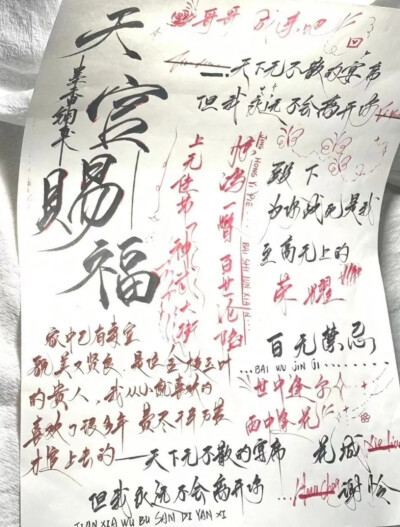 天官赐福
墨香铜臭
哥哥
天下无不散的宴席
但我永远不会离开你
上元佳节 神武大街
惊鸿一瞥 百世沦陷
JING HONG YI PIE BAI SHI LUN XIAN
殿下
为你战死是我
至高无上的
荣耀
百无禁忌
BAI WU JIN JI
家中已有妻室
貌美又贤良 是位金枝玉叶
的贵人，我从小就喜欢的
喜欢了很多年 费尽千辛万苦
才追上去的
天下无不散的宴席
但我永远不会离开你
花城 Hua Cheng
谢怜 Xie Lian
TIAN XIA WU BU SAN DI YAN XI